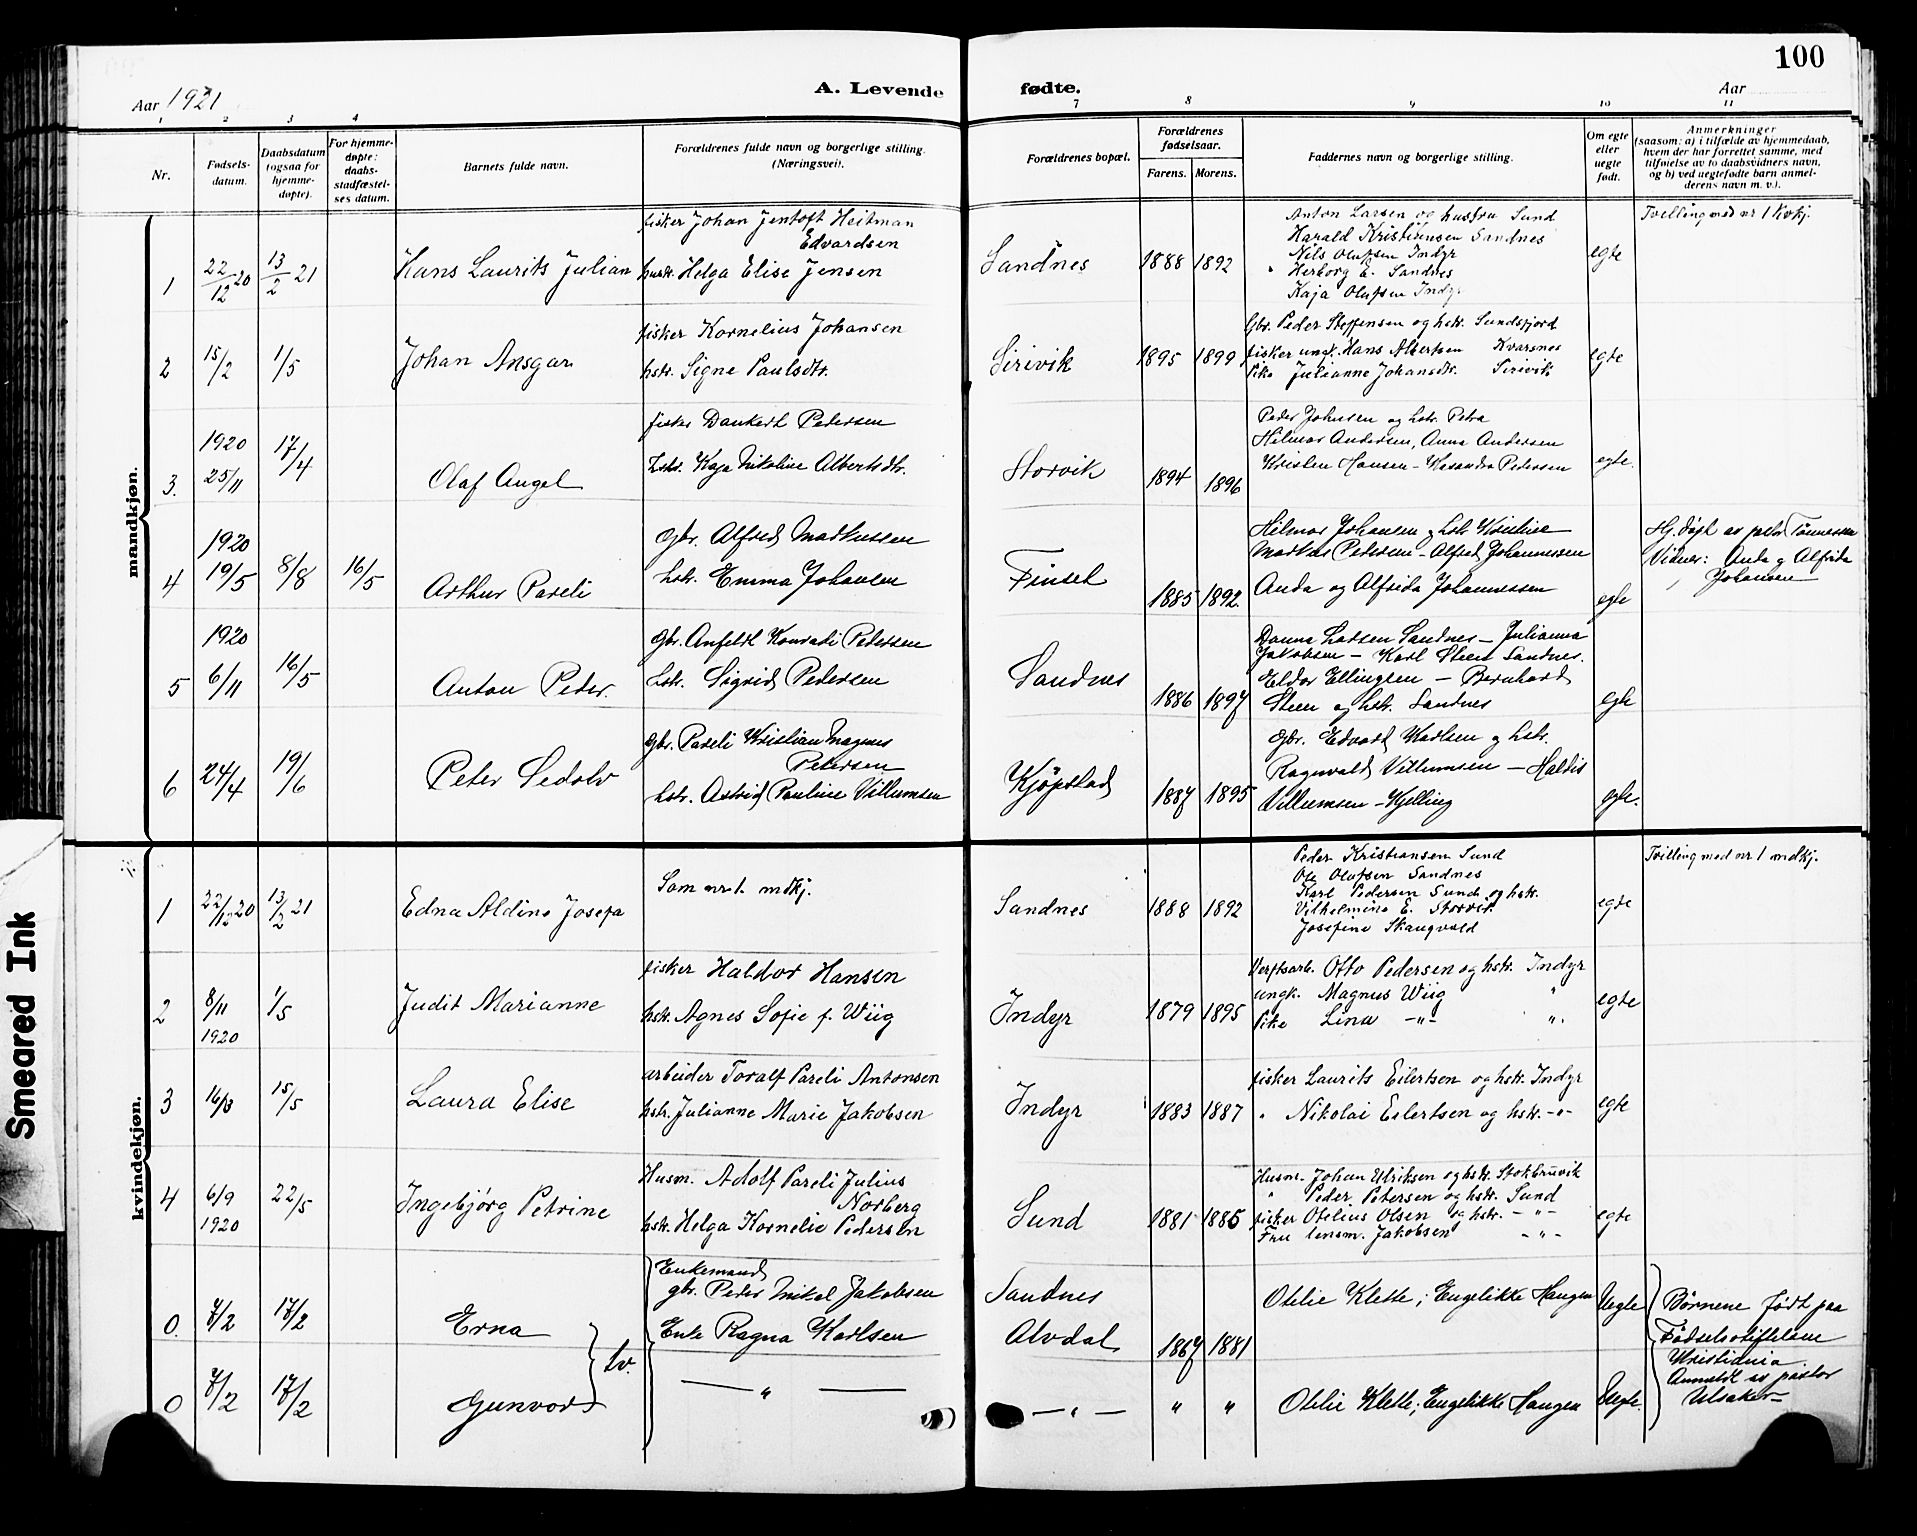 100
Aar 1921
A. Levende
fødte.
Aar
1 2 3 4 7 8 9 10 11
Nr.
Fødsels-
datum.
Daabsdatum
(ogsaa for
hjemme-
døpte).
For hjemme-
døpte:
daabs-
stadfæstel-
ses datum.
Barnets fulde navn.
Forældrenes fulde navn og borgerlige stilling.
(Næringsvei).
Forældrenes bopæl.
Forældrenes
fødselsaar.
Farens. Morens.
Faddernes navn og borgerlige stilling.
Om egte
eller
uegte
født.
Anmerkninger
(saasom: a) i tilfælde av hjemmedaab,
hvem der har forrettet samme, med
tilføielse av to daabsvidners navn,
og b) ved uegtefødte barn anmel-
derens navn m. v.).
mandkjøn.
1 22/12 20 13/2 21 Hans Laurits Julian
fisker Johan Jentoft Heitman
Edvardsen
hustr. Helga Elise Jensen
Sandnes 1888 1892
Anton Larsen og hustru Sund
Harald Kristiansen Sandnes
Nils Olufsen Indyr
" Herborg E. Sandnes
Kaja Olufsen Indyr
egte
Tvelling med nr 1 Kvkj.
2 15/2 1/5 Johan Ansgar
fisker Kornelius Johansen
hstr. Signe Paulsdtr.
Sirivik 1895 1899
Gbr. Peder Steffensen og hstr. Sundsfjord
fisker ungk. Hans Albertsen Kvarsnes
Pike Julianne Johansdtr. Sirivik
egte
3. 1920 25/11 17/4 Olaf Angel
fisker Dankert Pedersen
hstr. Kaja Nikoline Albertsdtr.
Storvik 1894 1896
Peder Johnsen og hstr. Petra
Hilmar Andersen, Anna Andersen
Kristen Hansen - Pedersen
egte.
4 1920 19/5 8/8 16/5 Arthur Pareli
gbr. Alfred Markussen
hstr. Emma Johansen
Finset 1885 1892.
Hilmar Johansen og hstr. Kristine
Markus Pedersen - Alfred Johannessen
Anda og Alfrida Johannessen
egte
Hj. døpt av peder Tønnessen
Vidner: Anda og Alfrida
Johansen
5 1920 6/11 16/5 Anton Peder.
gbr. Anfeldt Konradi Pedersen
hstr. Sigrid Pedersen
Sandnes 1886 1897
Danna Larsen Sandnes - Julianna
Jakobsen - Karl Steen Sandnes.
Eldor Ellingsen - Bernhard
Steen og hstr. Sandnes
egte
6 24/4 19/6 Peter Sedolv
gbr. Pareli Kristian Magnus
Petersen
hstr. Astrid Pauline Villumsen
Kjøpstad 1887 1895
gbr. Edvard Karlsen og hstr.
Ragnvald Villumsen - Haldis
Villumsen - Kjelling
egte.
kvindekjøn.
1 22/12 20 13/2 21 Edna Aldine Josefa
Som nr 1. mdkj.
Sandnes 1888 1892
Peder Kristiansen Sund
Ole Olufsen Sandnes
Karl Pedersen Sund og hstr.
Vilhelmine E. Storvik
Josefine Skaugvold
egte
Tvilling med nr 1 mdkj.
2 8/11 1920 1/5 Judit Marianne
fisker Haldor Hansen
hstr. Agnes Sofie f. Wiig
Indyr 1879 1895
Verftsarb. Otto Pedersen og hstr. Indyr
ungk. Magnus Wiig "
Pike Lina -"- ".
egte
3 16/3 15/5 Laura Elise
arbeider Toralf Pareli Antonsen
hstr. Julianne Marie Jakobsen
Indyr 1883 1887
fisker Laurits Eilertsen og hstr. Indyr
" Nikolai Eilertsen og hstr. -"-
egte
4 6/9 1920 22/5 Ingebjørg Petrine
Husm. Adolf Pareli Julius
Norberg
hstr. Helga Kornelie Pedersen
Sund 1881 1885
Husm. Johan Ulriksen og hstr. Stokbruvik
" Peder Petersen og hstr. Sund
fisker Otelius Olsen og hstr. -"-
Fru lensm. Jakobsen -"-
egte
0. 7/2 17/2 Erna
Enkemand
gbr. Peder Mikal Jakobsen
Enke Ragna Karlsen
Sandnes
Alvdal 1867 1881
Otelie Klette; Engelikke Haugen
Uegte
Børnene født paa
Fødselsstiftelsen
Kristiania
Anmeldt av pastor
Ulsaker
tv.
0 7/2 17/2 Gunvor
— " —
— " — " "
Otelie Klette; Engelikke Haugen
Uegte.
Smeared Ink